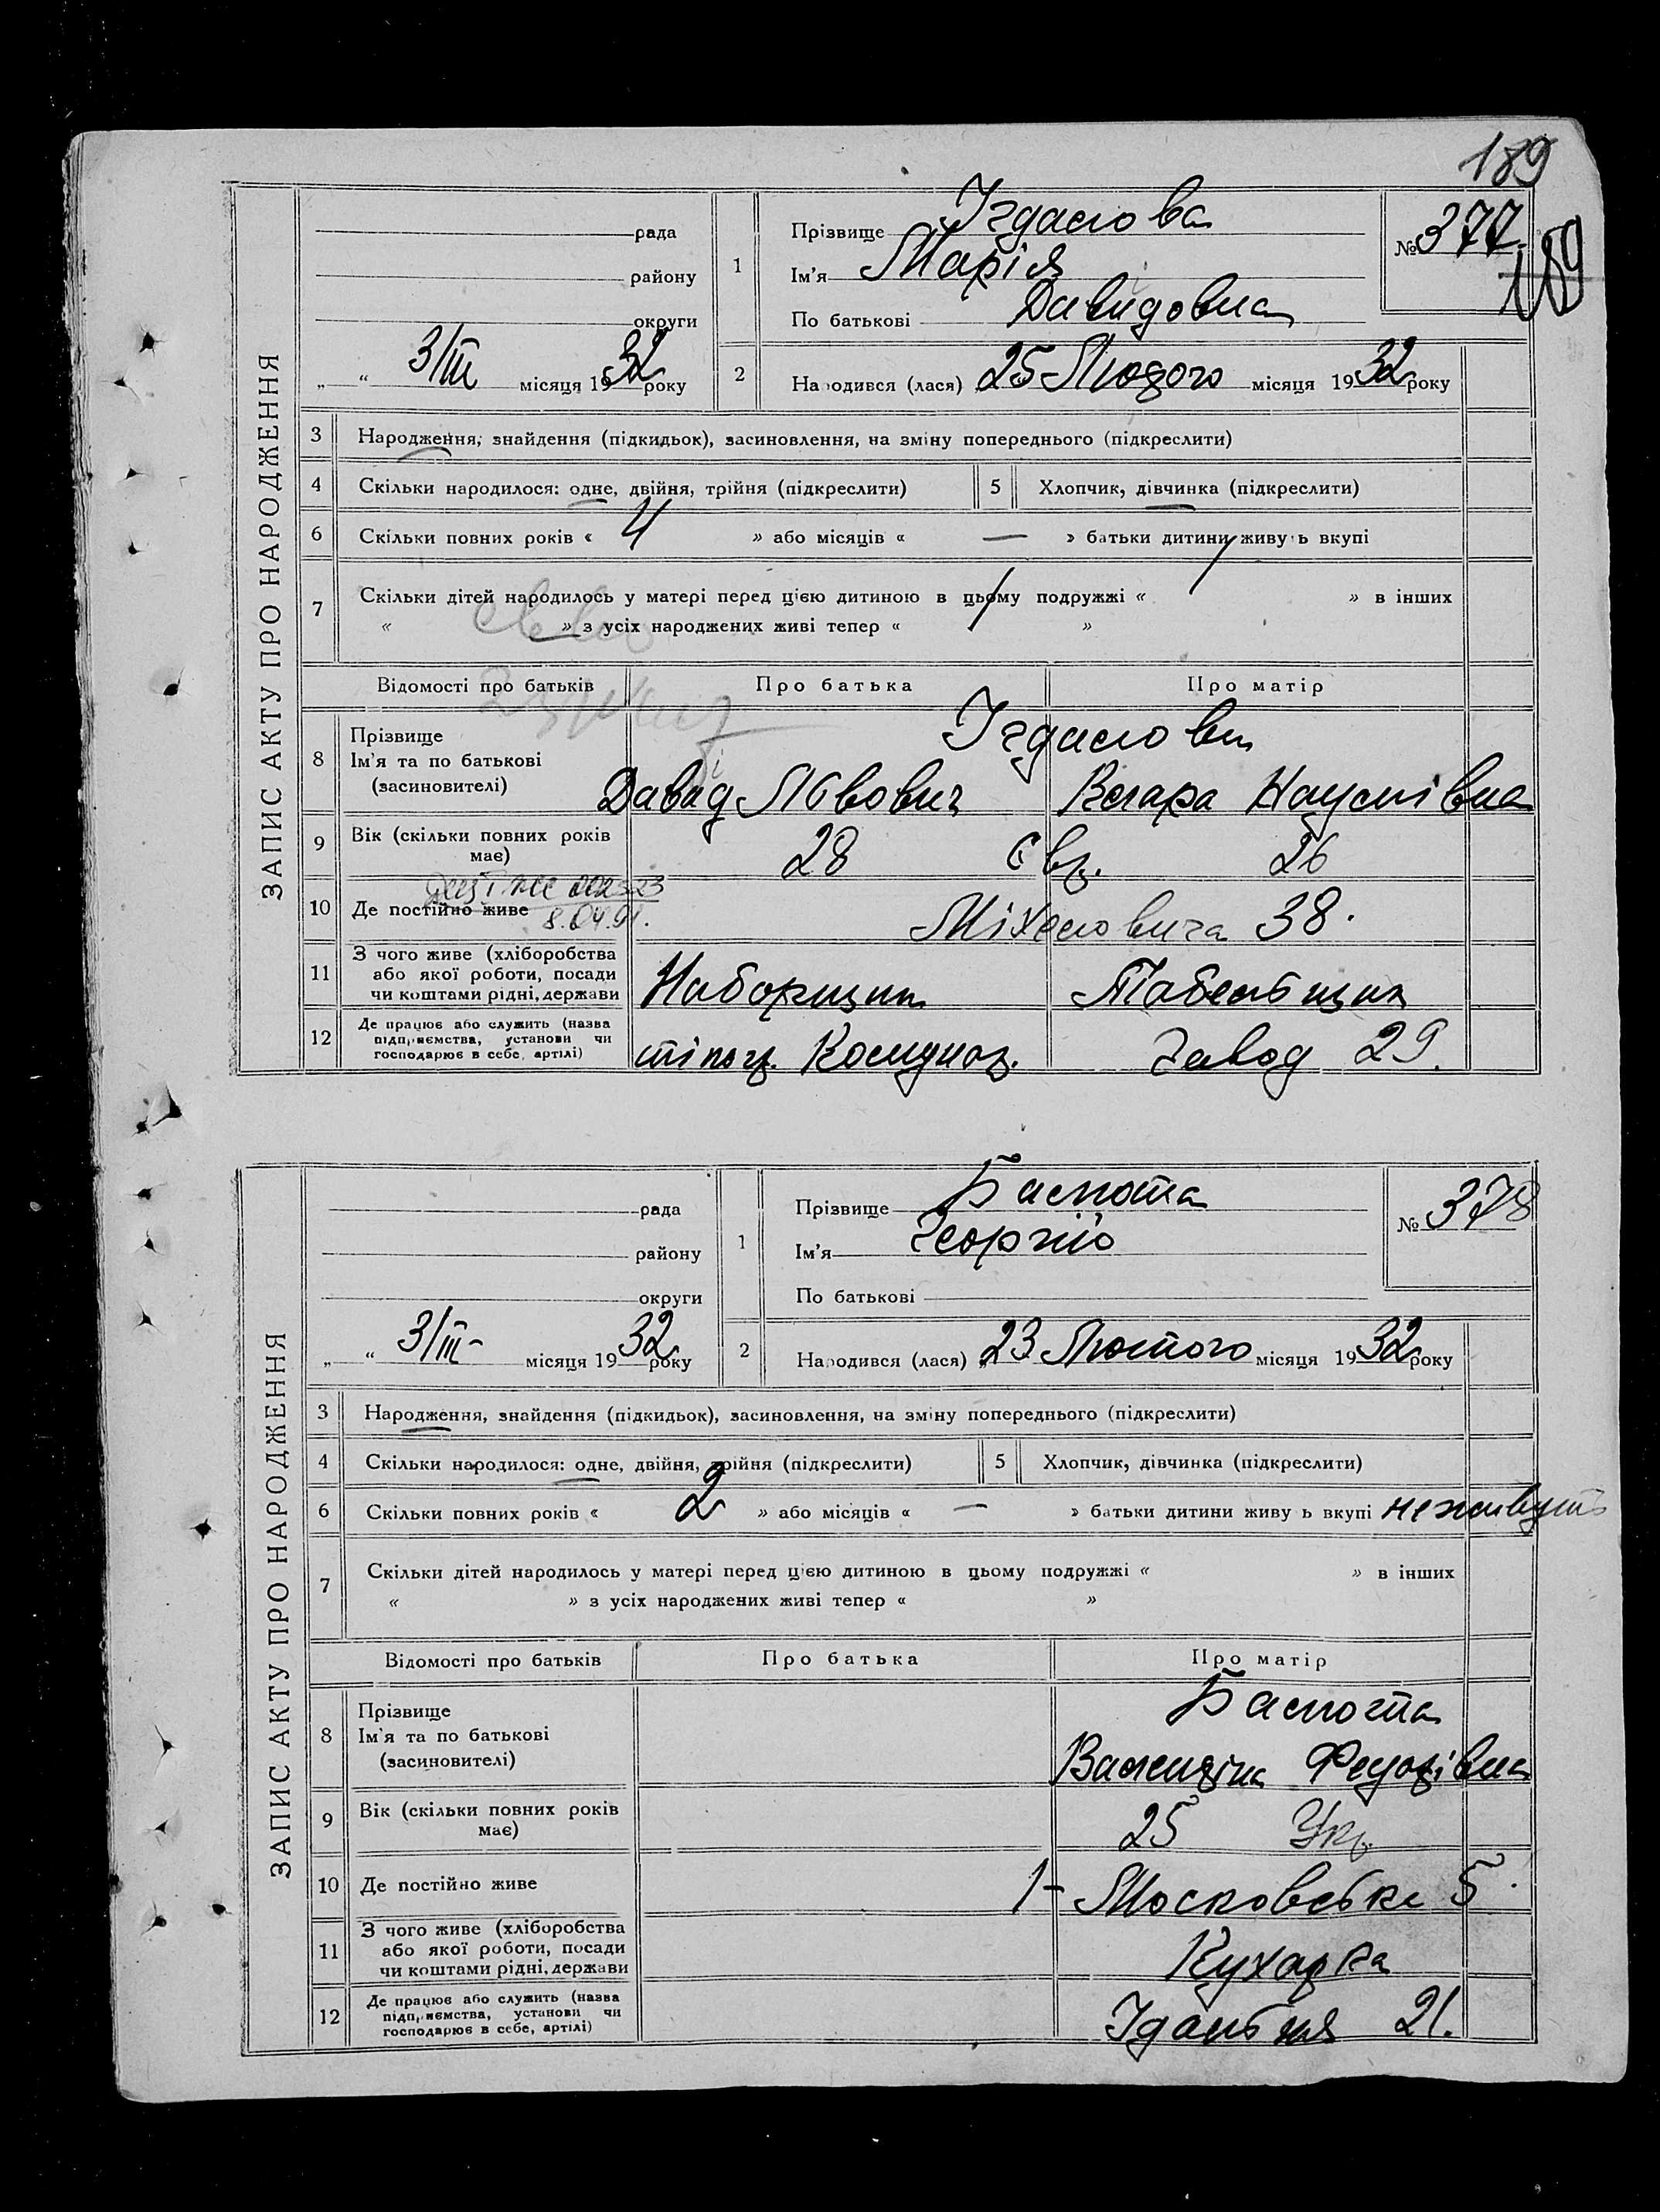 189
ЗАПИС АКТУ ПРО НАРОДЖЕННЯ
рада
району
округи
„ “ 3/III місяця 1932 року
1
Прізвище
Ім'я Марія
По батькові Давидовна
№ 377
189
2 Народився (лася) 25 Лютого місяця 1932 року
3 Народження, знайдення (підкидьок), засиновлення, на зміну попереднього (підкреслити)
4 Скільки народилося: одне, двійня, трійня (підкреслити) 5 Хлопчик, дівчинка (підкреслити)
6 Скільки повних років « 4 » або місяців « — » батьки дитини живуть вкупі
7 Скільки дітей народилось у матері перед цією дитиною в цьому подружжі « / » в інших
« » з усіх народжених живі тепер « / »
Відомості про батьків Про батька Про матір
8 Прізвище
Ім'я та по батькові
(засиновителі)
Давид Львович Клара Наумівна
9 Вік (скільки повних років має) 28 Євр. 26
002323
8.04.91.
10 Де постійно живе Міхеловича 38.
11 З чого живе (хліборобства або якої роботи, посади чи коштами рідні, держави Наборщик Табельщик
12 Де працює або служить (назва підприємства, установи чи господарює в себе, артілі) тіпогр. Комунар. Завод 29.
ЗАПИС АКТУ ПРО НАРОДЖЕННЯ
рада
району
округи
„ “ 3/III- місяця 1932 року
1
Прізвище
Ім'я Георгій
По батькові
№ 378
2 Народився (лася) 23 Лютого місяця 1932 року
3 Народження, знайдення (підкидьок), засиновлення, на зміну попереднього (підкреслити)
4 Скільки народилося: одне, двійня, трійня (підкреслити) 5 Хлопчик, дівчинка (підкреслити)
6 Скільки повних років « 2 » або місяців « — » батьки дитини живуть вкупі не живуть
7 Скільки дітей народилось у матері перед цією дитиною в цьому подружжі « » в інших
« » з усіх народжених живі тепер « »
Відомості про батьків Про батька Про матір
8 Прізвище
Ім'я та по батькові
(засиновителі)
Валентіна Федорівна
9 Вік (скільки повних років має) 25 Укр.
10 Де постійно живе 1-Московська 5.
11 З чого живе (хліборобства або якої роботи, посади чи коштами рідні, держави Кухарка
12 Де працює або служить (назва підприємства, установи чи господарює в себе, артілі) Їдальня 21.